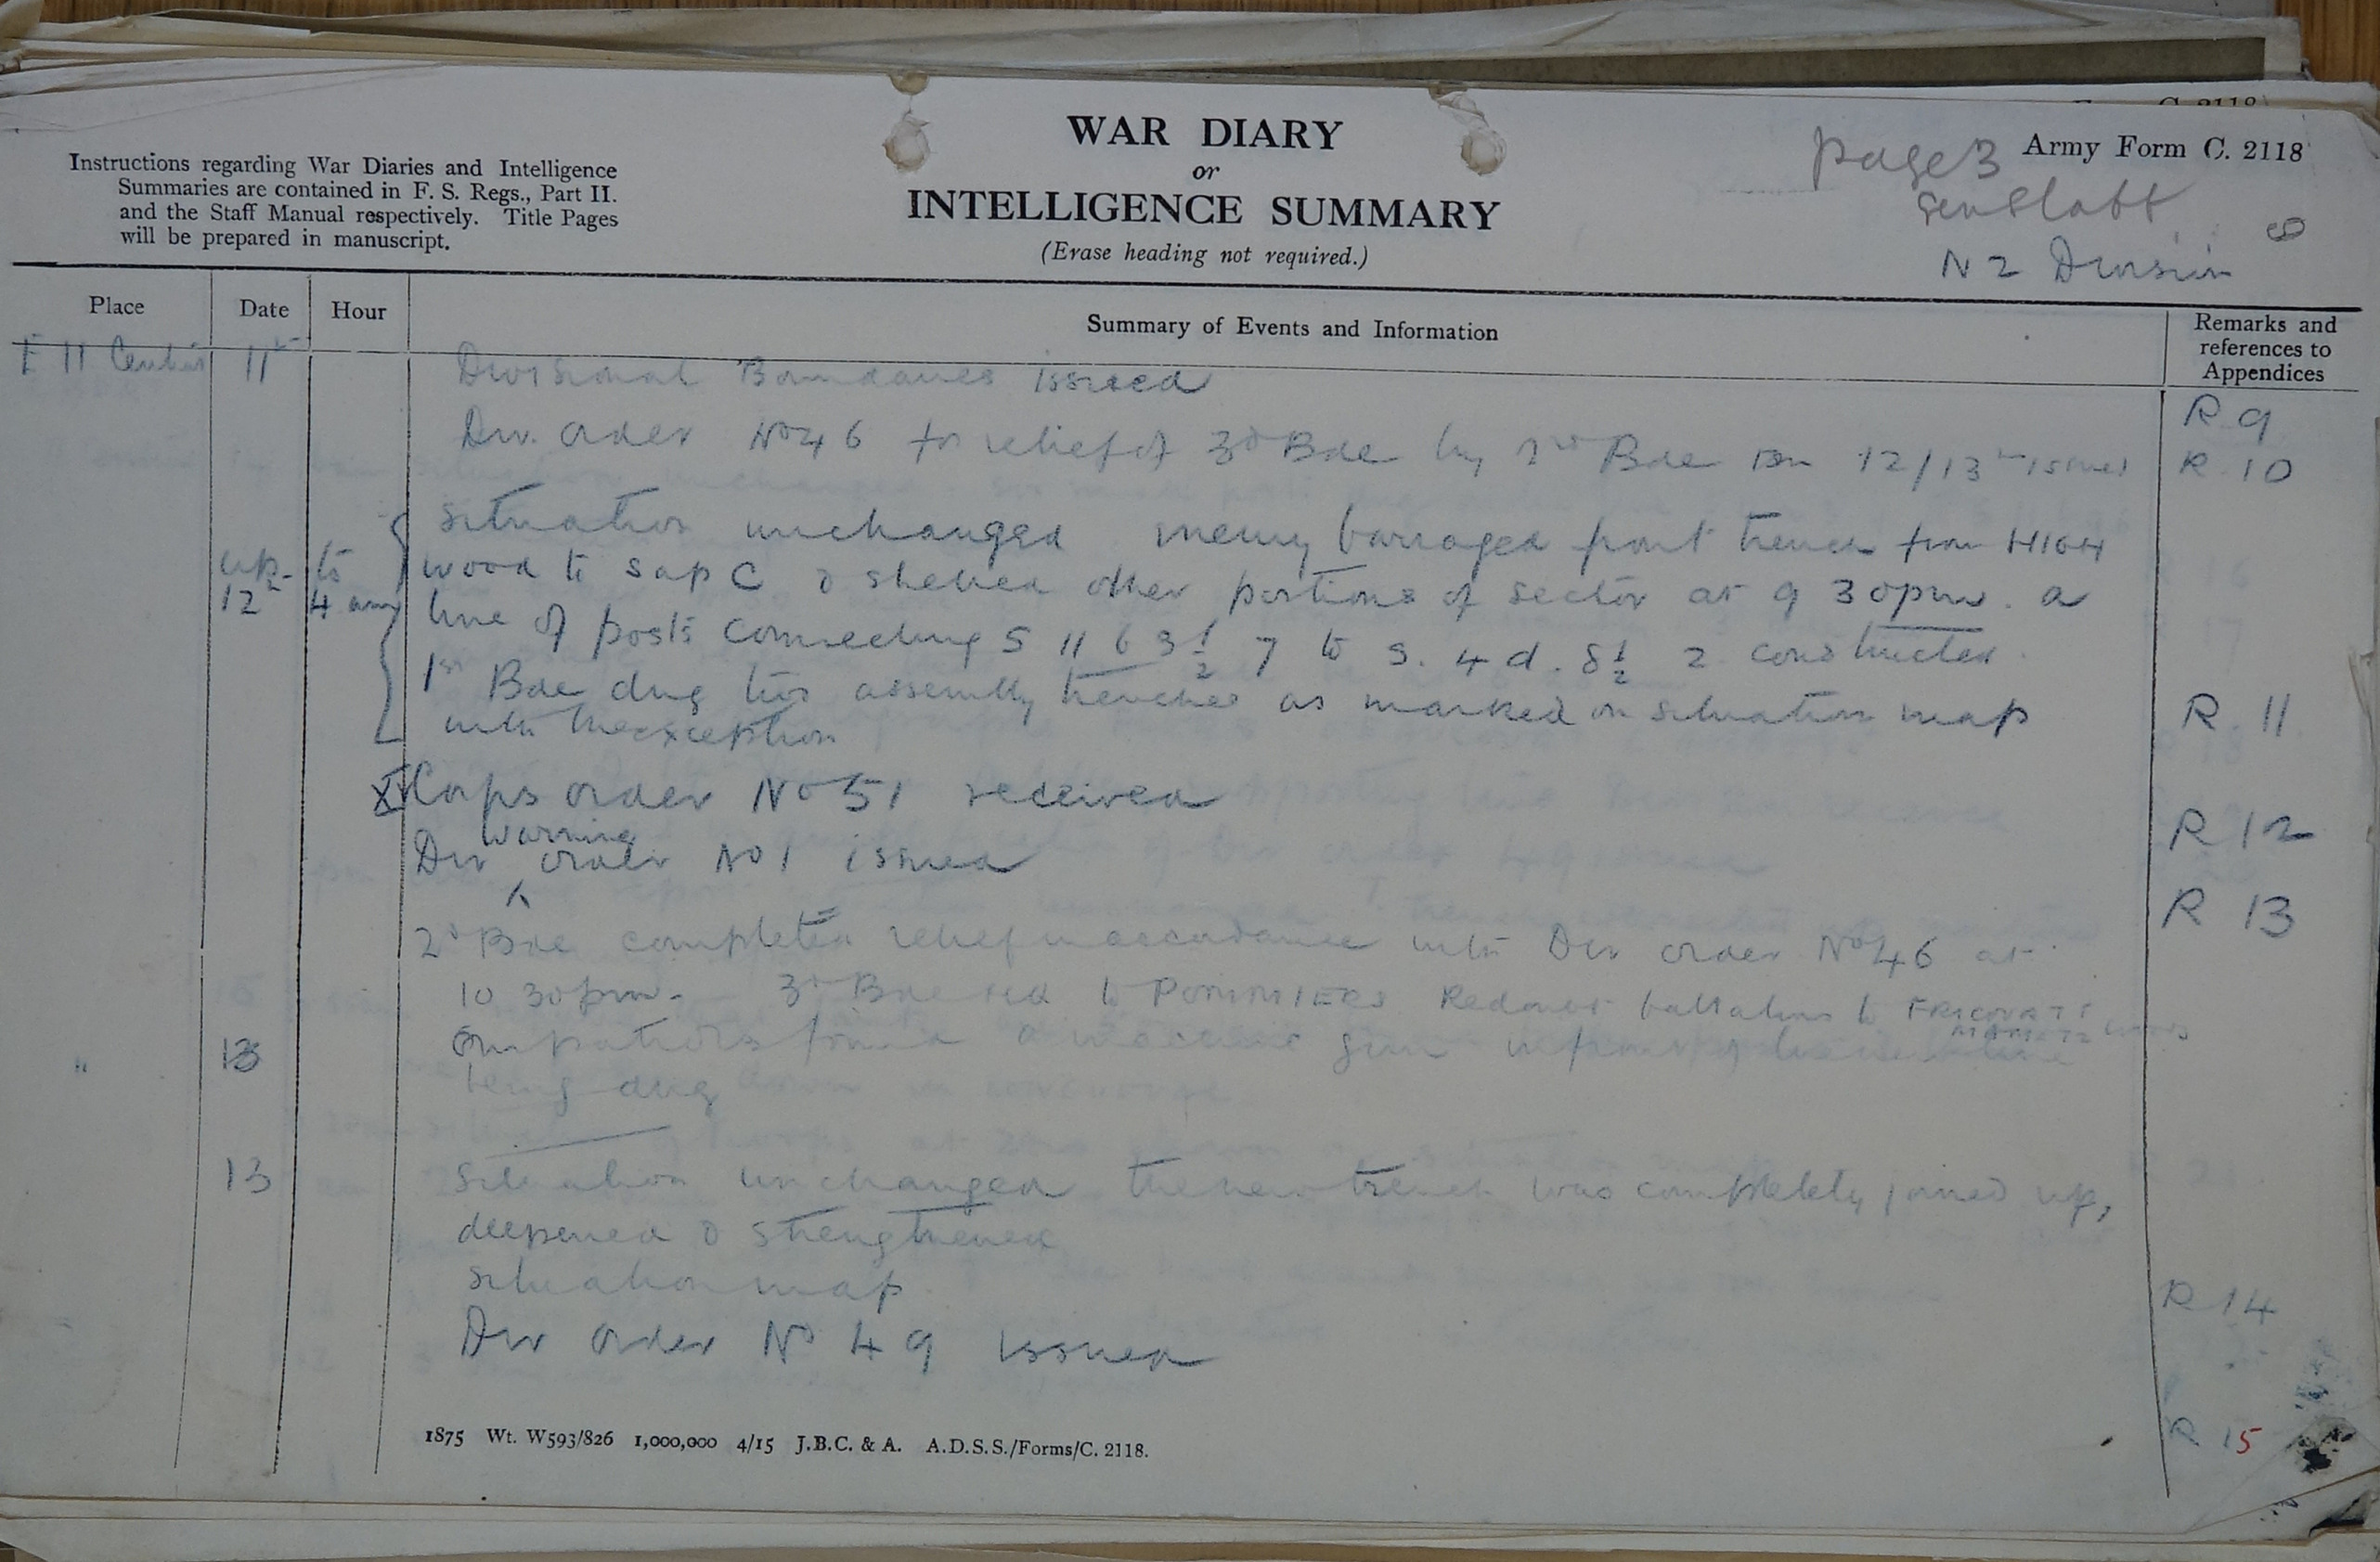 WAR DIARY
or
INTELLIGENCE SUMMARY
(Erase heading not required.)
Instructions regarding War Diaries and Intelligence
Summaries are contained in F. S. Regs., Part II.
and the Staff Manual respectively. Title Pages
will be prepared in manuscript.
Army Form C. 2118
page 3
Gen Staff
N Z Division
8
Place
Date
Hour
Summary of Events and Information
Remarks and
references to
Appendices
11th
Divisional Boundaries issued
R 9
Div. order No 46 for relief of 3d Bde by 2nd Bde on 12/13th issued
R 10
Situation unchanged enemy barraged front trench from HIGH
up to
wood to Sap C & shelled other portions of sector at 9 30pm. a
12th 4 am
line of posts connecting S 11 b 3½ 7 to S. 4 d. 8½ 2 constructed.
1st Bde dug two assembly trenches as marked on situation map
R 11
with the exception
Corps order No 51 received
R 12
Div Warning order No 1 issued
R 13
2d Bde completed relief in accordance with Div order No 46 at
10 30pm. 3d Bde to POMMIERS Redoubt battalions to FRICOURT &
MAMETZ woods
" 13
Our patrols found a machine gun in front of
being dug
13
Situation unchanged the new trench was completely joined up,
deepened & strengthened
Situation map
R 14
Div order No 49 issued
R 15
1875 Wt. W593/826 1,000,000 4/15 J.B.C. & A. A.D.S.S./Forms/C. 2118.